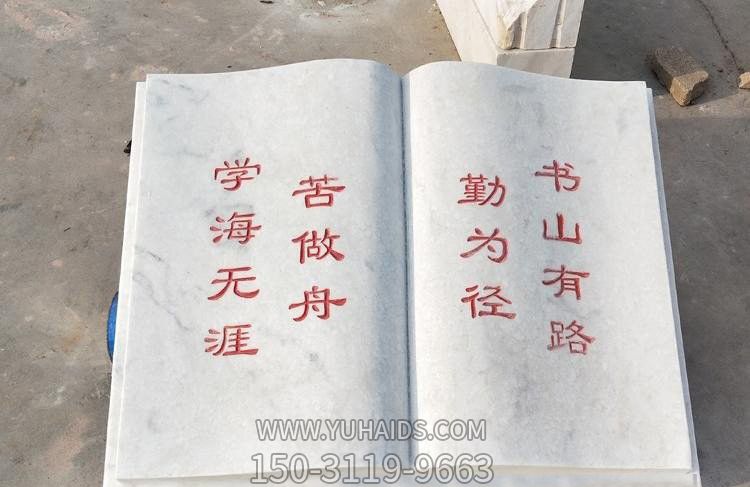 书山有路
勤为径
学海无涯
苦做舟
WWW.YUHAIDS.COM
150-3119-9663